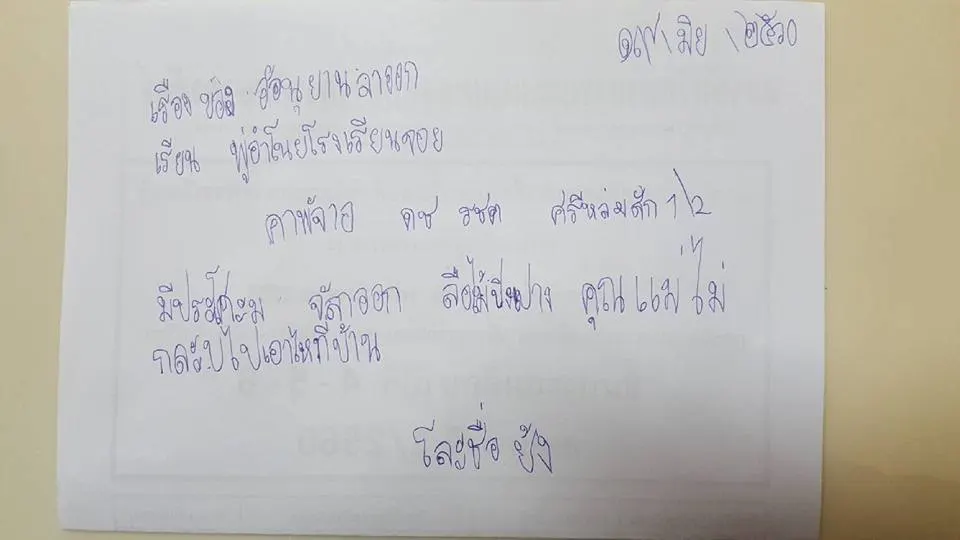 ๑๗ \ มิย \ ๒๕๖๐
เรื่อง ขอล ออนุยานลาออก
เรียน พู่อำโนยโรงเรียนจอย
คาพจาอ ดช รชต ศรีหล่มสัก 1\2
มีประโสะม จัลาออก ลือไม้ปิ่ง คุณแม่ไม่
กละบไปเอาไหที่บ้าน
โละชื่อ ยัง